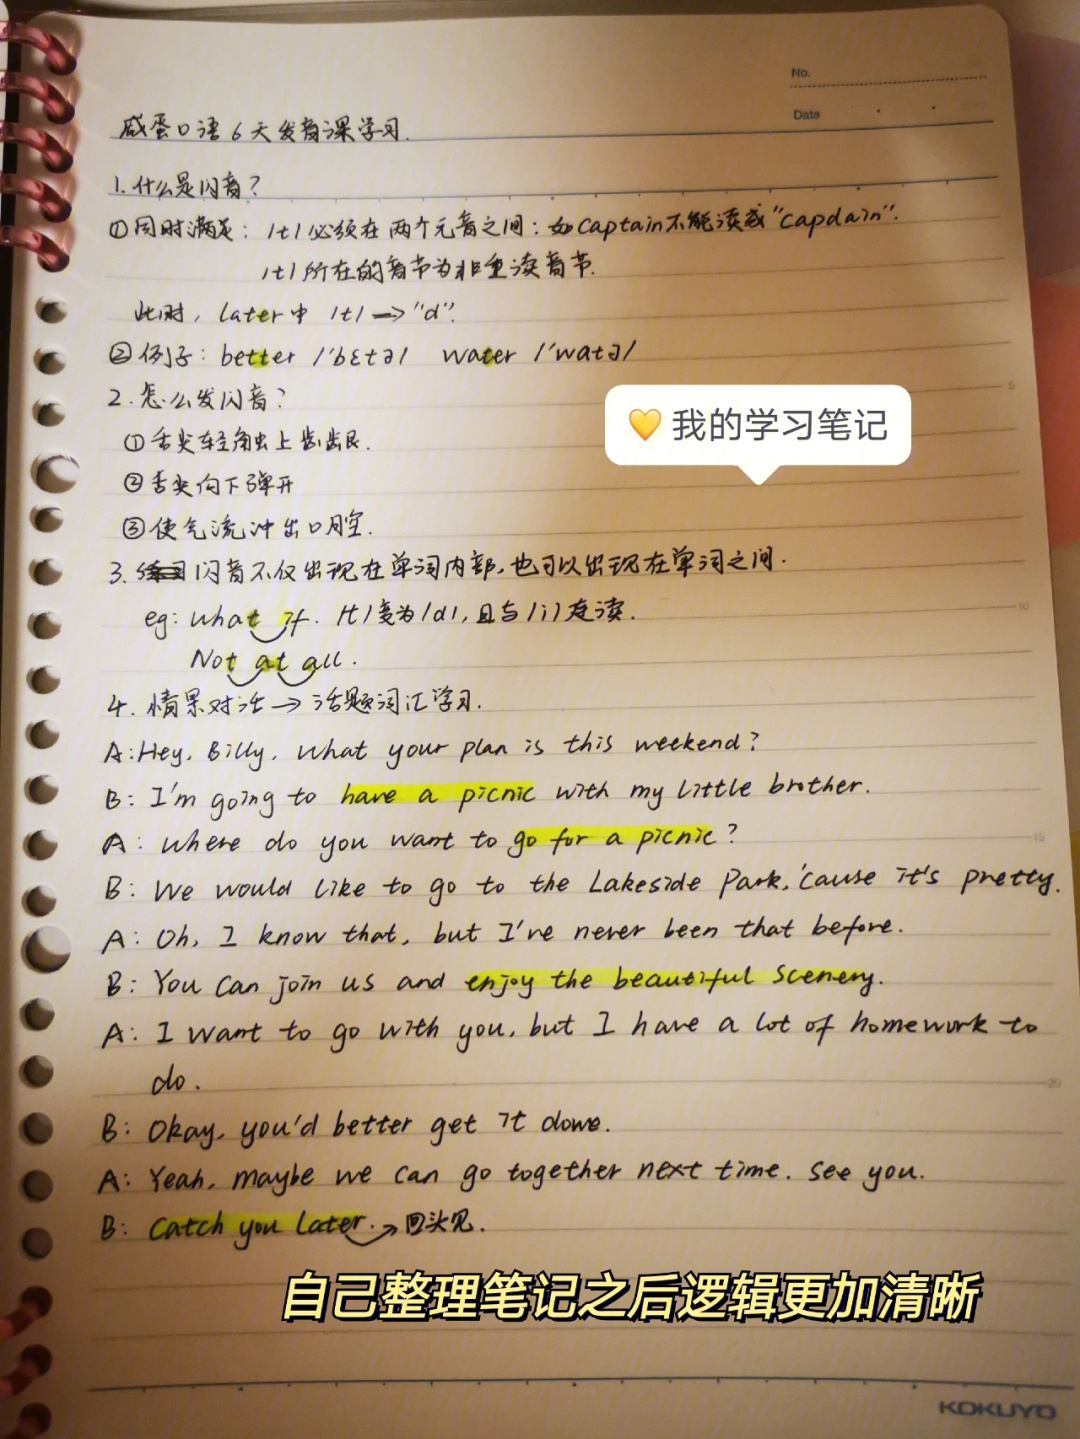 No.
Date
咸蛋口语6天发音课学习.
1.什么是闪音?
①同时满足: /t/必须在两个元音之间:如captain不能读成"capdain".
/t/所在的音节为非重读音节.
此时, later中 /t/→"d".
②例子: better /'bɛtə/ water /'watə/
2.怎么发闪音?
💛我的学习笔记
①舌尖轻触上齿龈.
②舌尖向下弹开
③使气流冲出口腔.
3.闪音不仅出现在单词内部,也可以出现在单词之间.
eg: what if. /t/变为/d/,且与/i/连读.
Not at all.
4.情景对话→话题词汇学习.
A:Hey, Billy, what your plan is this weekend?
B: I'm going to have a picnic with my little brother.
A: where do you want to go for a picnic?
B: We would like to go to the Lakeside Park, 'cause it's pretty.
A: Oh, I know that, but I've never been that before.
B: You can join us and enjoy the beautiful scenery.
A: I want to go with you, but I have a lot of homework to
do.
B: Okay, you'd better get it done.
A: Yeah, maybe we can go together next time. See you.
B: Catch you later.→回头见.
自己整理笔记之后逻辑更加清晰
KOKUYO